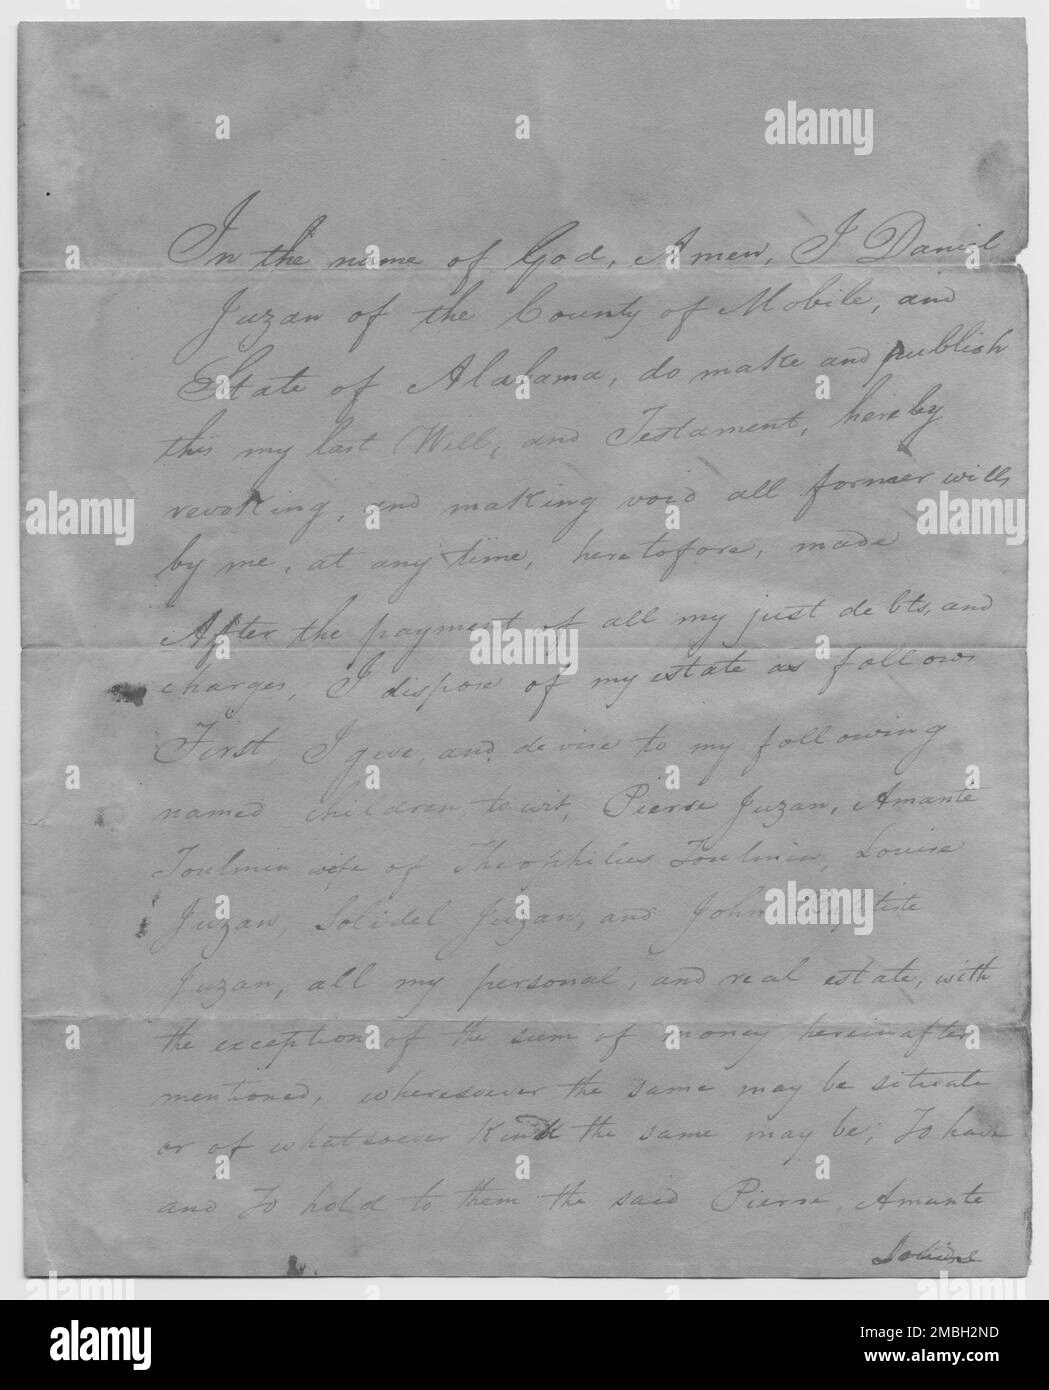 In the name of God, Amen, I Daniel
Juzan of the County of Mobile, and
State of Alabama, do make and publish
this my last Will, and Testament, hereby
revoking, and making void all former wills
by me, at any time, heretofore, made
After the payment of all my just debts, and
charges, I dispose of my estate as follows
First, I give, and devise to my following
named children, to wit, Pierre Juzan, Amante
Toulmin wife of Theophilus Toulmin, Louise
Juzan, Solidel Juzan, and John Baptiste
Juzan, all my personal, and real estate, with
the exception of the sum of money hereinafter
mentioned, wheresoever the same may be situate
or of whatsoever kind the same may be; To have
and To hold to them the said Pierre, Amante
alamy
alamy
alamy
alamy
alamy
alamy
Image ID: 2MBH2ND
www.alamy.com